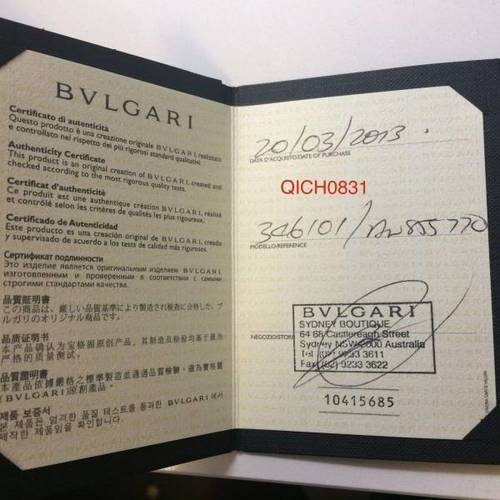 BVLGARI
Certificato di autenticità
Questo prodotto è una creazione originale BVLGARI, realizzato
e controllato nel rispetto dei più rigorosi standard qualitativi.
Authenticity Certificate
This product is an original creation of BVLGARI, created and
checked according to the most rigorous quality tests.
Certificat d'authenticité
Ce produit est une authentique création BVLGARI, réalisé
et contrôlé selon les critères de qualité les plus rigoureux.
Certificado de Autenticidad
Este producto es una creación original de BVLGARI, creado
y supervisado de acuerdo a los tests de calidad más rigurosos.
Сертификат подлинности
Это изделие является оригинальным изделием BVLGARI,
изготовленным и проверенным в соответствии с самыми
строгими стандартами качества.
品質証明書
この商品は、厳しい品質基準により製造され検査に合格した、ブ
ルガリのオリジナル商品です。
品质证明书
本产品确认为宝格丽原创产品，其制造及检验均基于最为
严格的质量测试。
品質證明書
本產品依據嚴格之標準製造並通過品質檢驗，確為寶格麗
BVLGARI原創產品。
제품 보증서
본 제품은 엄격한 품질 테스트를 통과한 BVLGARI에서
제작한 제품임을 확인합니다.
20/03/2013.
DATA D'ACQUISTO/DATE OF PURCHASE
QICH0831
346101/AN855770
MODELLO/REFERENCE
BVLGARI
SYDNEY BOUTIQUE
64-68 Castlereagh Street
Sydney NSW 2000 Australia
Tel (02) 9233 3611
Fax (02) 9233 3622
NEGOZIO/STORE
10415685